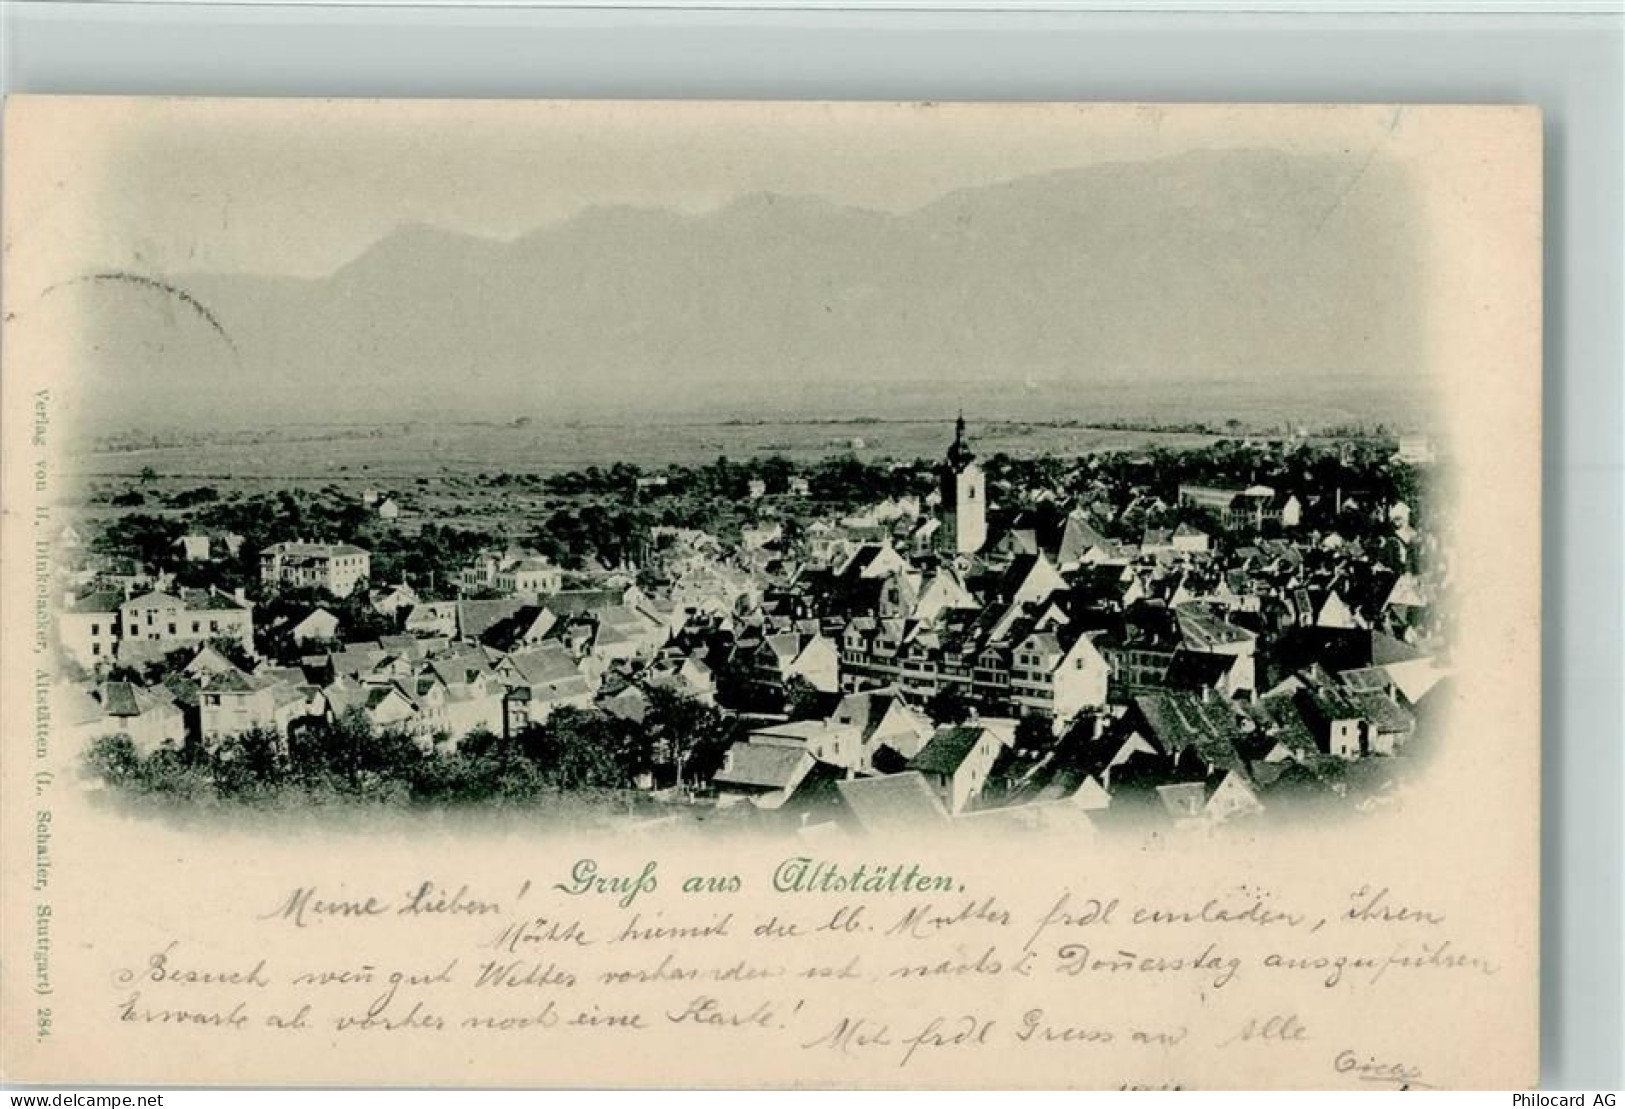 Verlag von H. Dinkelacker, Altstätten (L. Schaller, Stuttgart) 284.
Gruß aus Altstätten.
Meine Lieben!
Möchte hiemit die lb. Mutter frdl einladen, ihren
Besuch weñ gut Wetter vorhanden ist, nächst. Doñerstag auszuführen
Erwarte ab. vorher noch eine Karte!
Mit frdl Gruss an Alle
www.delcampe.net
Philocard AG